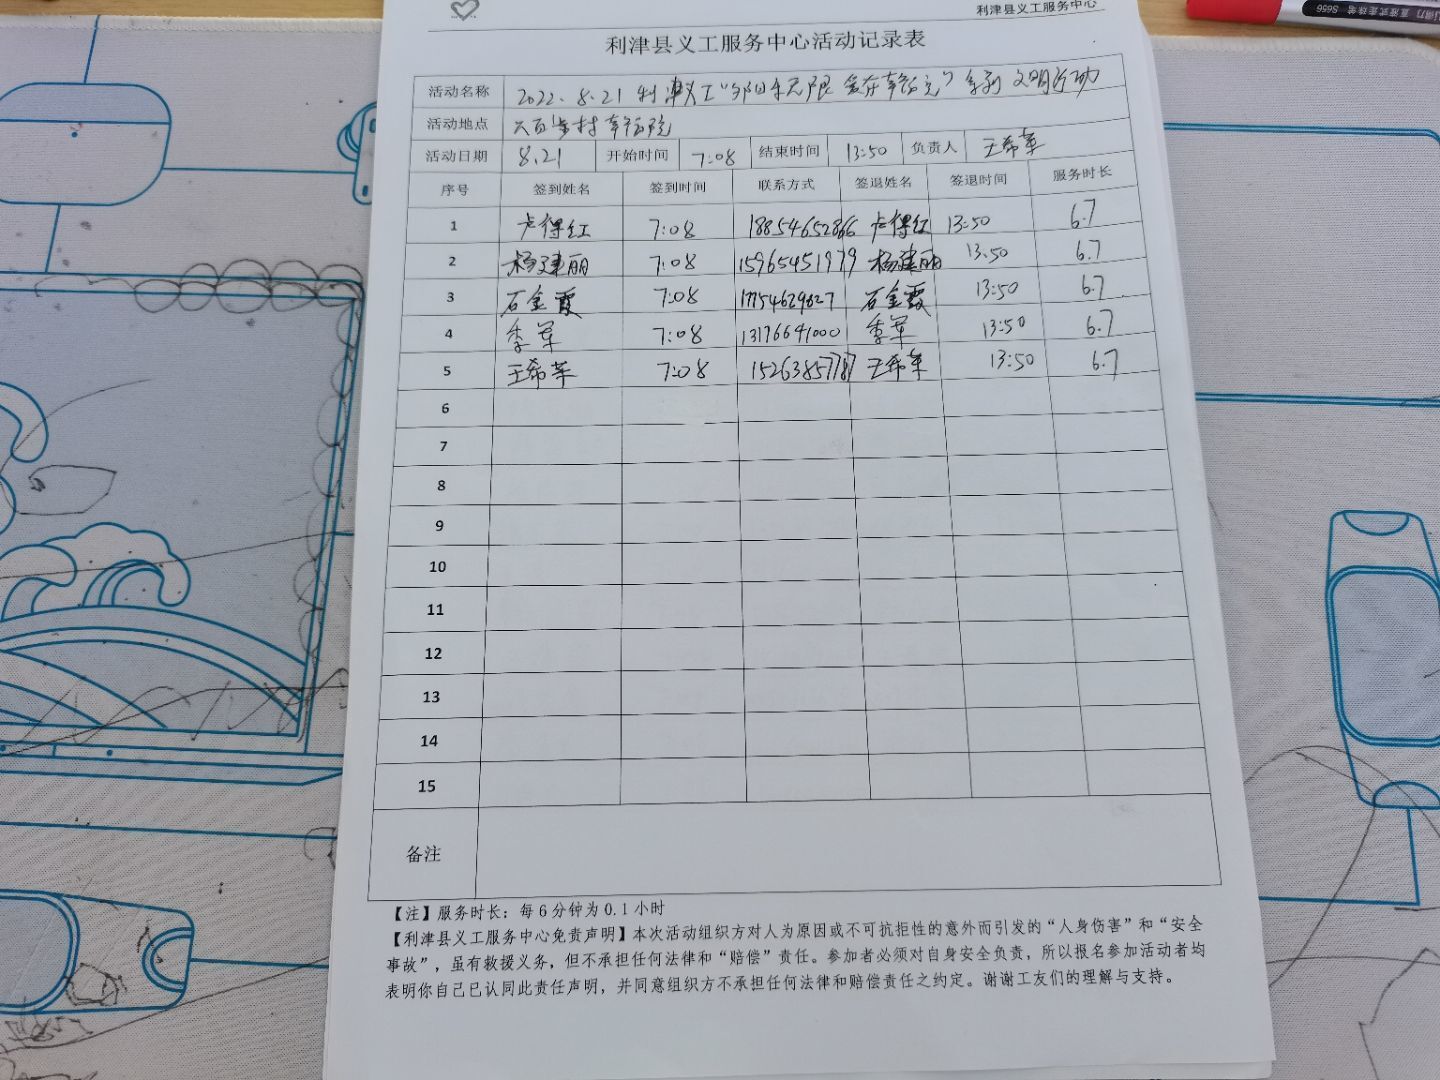 利津县义工服务中心
利津县义工服务中心活动记录表
活动名称 2022.8.21 利津义工“夕阳无限 幸福院”系列文明活动
活动地点 六百步村幸福院
活动日期 8.21 开始时间 7:08 结束时间 13:50 负责人 王希苹
序号 签到姓名 签到时间 联系方式 签退姓名 签退时间 服务时长
1 卢得红 7:08 18854652866 卢得红 13:50 6.7
2 杨建丽 7:08 15965451979 杨建丽 13:50 6.7
3 石金霞 7:08 17754629627 石金霞 13:50 6.7
4 季军 7:08 13176641000 季军 13:50 6.7
5 王希苹 7:08 15263857787 王希苹 13:50 6.7
6
7
8
9
10
11
12
13
14
15
备注
【注】服务时长：每6分钟为0.1小时
【利津县义工服务中心免责声明】本次活动组织方对人为原因或不可抗拒性的意外而引发的“人身伤害”和“安全
事故”，虽有救援义务，但不承担任何法律和“赔偿”责任。参加者必须对自身安全负责，所以报名参加活动者均
表明你自己已认同此责任声明，并同意组织方不承担任何法律和赔偿责任之约定。谢谢工友们的理解与支持。